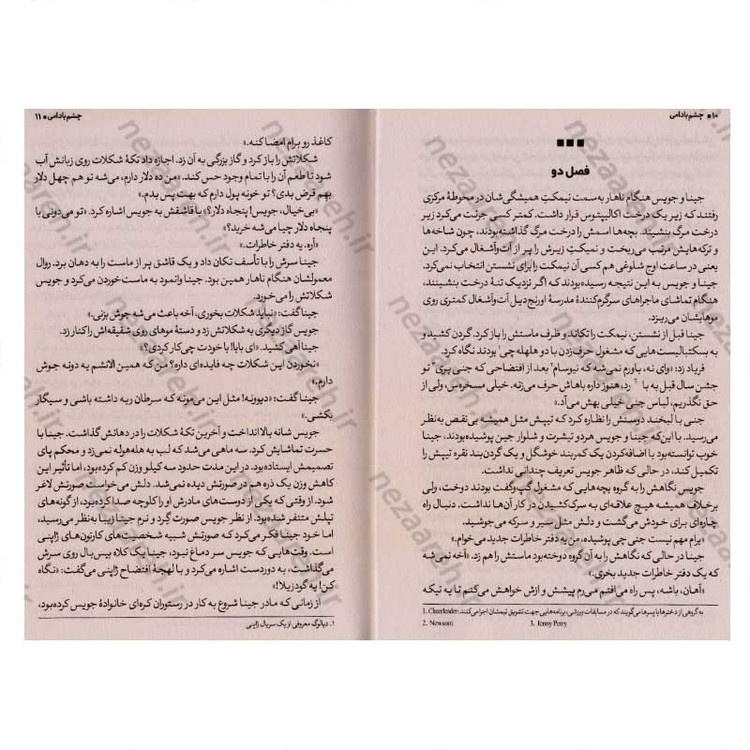 ۱۰ ■ چشم بادامی
■■■
فصل دو
جینا و جویس هنگام ناهار به سمت نیمکتِ همیشگی‌شان در محوطهٔ مرکزی
رفتند که زیر یک درخت اکالیپتوس قرار داشت. کمتر کسی جرئت می‌کرد زیر
درخت مرگ بنشیند. بچه‌ها اسمش را درخت مرگ گذاشته بودند، چون شاخه‌ها
و ترکه‌هایش مرتب می‌ریخت و نمیکتِ زیرش را پر از آت‌وآشغال می‌کرد. این
یعنی در ساعت اوج شلوغی هم کسی آن نیمکت را برای نشستن انتخاب نمی‌کرد.
جینا و جویس به این نتیجه رسیده بودند که اگر نزدیک تنهٔ درخت بنشینند،
هنگام تماشای ماجراهای سرگرم‌کنندهٔ مدرسهٔ اورنج‌دیل آت‌وآشغال کمتری روی
موهایشان می‌ریزد.
جینا قبل از نشستن، نیمکت را تکاند و ظرف ماستش را باز کرد. گردن کشید و
به بسکتبالیست‌هایی که مشغول حرف‌زدن با دو هلهله‌چی بودند نگاه کرد.
فریاد زد: «وای نه، باورم نمی‌شه که نیوسام² بعد از افتضاحی که جنی پری³ تو
جشن سال قبل به پا کرد، هنوز داره باهاش حرف می‌زنه. خیلی مسخره‌س، ولی از
حق نگذریم، لباس جنی خیلی بهش می‌آد.»
جنی با لبخند دوستش را نظاره کرد که تیپش مثل همیشه بی‌نقص به‌نظر
می‌رسید. با این‌که جینا و جویس هر دو تیشرت و شلوار جین پوشیده بودند، جینا
خوب توانسته بود با اضافه‌کردن یک کمربند خوشگل و یک گردن‌بند نقره تیپش را
تکمیل کند، در حالی که ظاهر جویس تعریف چندانی نداشت.
جویس نگاهش را به گروه بچه‌هایی که مشغول گپ‌وگفت بودند دوخت، ولی
برخلاف همیشه هیچ علاقه‌ای به سرک‌کشیدن در کار آن‌ها نداشت. دنبال راه
چاره‌ای برای خودش می‌گشت و دلش مثل سیر و سرکه می‌جوشید.
«برام مهم نیست جنی چی پوشیده، من یه دفتر خاطرات جدید می‌خوام.»
جینا در حالی که نگاهش را به آن گروه دوخته بود ماستش را هم زد. «آخه نمی‌شه
که یک دفتر خاطرات جدید بخری.
«آهان، باشه، پس راه می‌افتم می‌رم پیشش و ازش خواهش می‌کنم تا یه تیکه
1. Cheerleader: به گروهی از دخترها یا پسرها می‌گویند که در مسابقات ورزشی، برنامه‌هایی جهت تشویق تیمشان اجرا می‌کنند.
2. Newsom 3. Jenny Perry
چشم بادامی ■ ۱۱
کاغذ رو برام امضا کنه.»
شکلاتش را باز کرد و گاز بزرگی به آن زد. اجازه داد تکهٔ شکلات روی زبانش آب
شود تا طعم آن را با تمام وجود حس کند. «من ده دلار دارم، می‌شه تو هم چهل دلار
بهم قرض بدی؟ تو خونه پول دارم که بهت پس بدم.»
«بی‌خیال، جویس! پنجاه دلار؟» با قاشقش به جویس اشاره کرد. «تو می‌دونی با
پنجاه دلار چیا می‌شه خرید؟»
«آره. یه دفتر خاطرات.»
جینا سرش را با تأسف تکان داد و یک قاشق پر از ماست را به دهان برد. روال
معمولشان هنگام ناهار همین بود. جینا وانمود به ماست خوردن می‌کرد و جویس
شکلاتش را می‌خورد.
جینا گفت: «نباید شکلات بخوری، آخه باعث می‌شه جوش بزنی.»
جویس گاز دیگری به شکلاتش زد و دستهٔ موهای روی شقیقه‌اش را کنار زد.
جینا آهی کشید. «ای بابا! با خودت چی‌کار کردی؟»
«نخوردن این شکلات چه فایده‌ای داره؟ من که همین الانشم یه دونه جوش
دارم.»
جینا گفت: «دیوونه! مثل این می‌مونه که سرطان ریه داشته باشی و سیگار
بکشی.»
جویس شانه بالا انداخت و آخرین تکهٔ شکلات را در دهانش گذاشت. جینا با
حسرت تماشایش کرد. سه ماهی می‌شد که لب به هله‌هوله نمی‌زد و محکم پای
تصمیمش ایستاده بود. در این مدت حدود سه کیلو وزن کم کرده بود، اما تأثیر این
کاهش وزن یک ذره هم در صورتش دیده نمی‌شد. دلش می‌خواست صورتش لاغر
شود. از وقتی که یکی از دوست‌های مادرش او را کلوچه صدا کرده بود، از گونه‌های
تپلش متنفر شده بود. از نظر جویس صورت گرد و نرم جینا زیبا به‌نظر می‌رسید،
اما خود جینا فکر می‌کرد که صورتش شبیه شخصیت‌های کارتون‌های ژاپنی
است. وقت‌هایی که جویس سر دماغ نبود، جینا یک کلاه بیس‌بال روی سرش
می‌گذاشت، به دوردست اشاره می‌کرد و با لهجهٔ افتضاح ژاپنی می‌گفت: «نگاه
کن! یه گودزیلا!¹»
از زمانی که مادر جینا شروع به کار در رستوران کره‌ای خانوادهٔ جویس کرده بود،
1. دیالوگ معروفی از یک سریال ژاپنی
nezaareh.ir